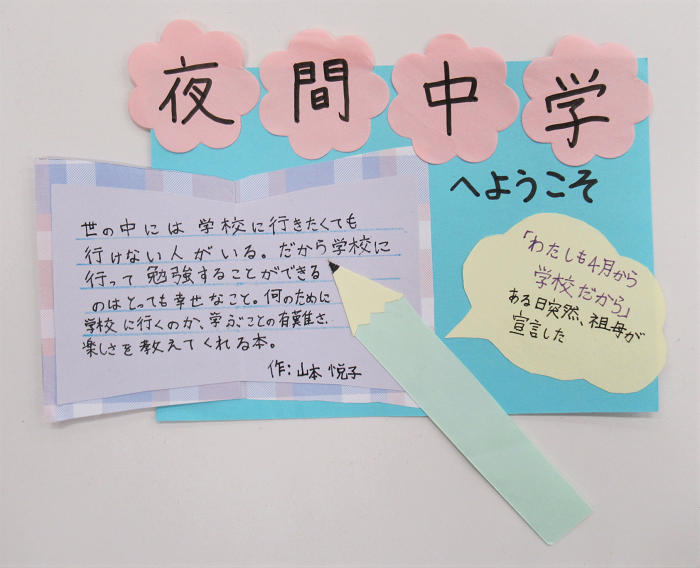 夜間中学
へようこそ
世の中には学校に行きたくても
行けない人がいる。だから学校に
行って勉強することができる
のはとっても幸せなこと。何のために
学校に行くのか、学ぶことの有難さ、
楽しさを教えてくれる本。
作:山本悦子
「わたしも4月から
学校だから」
ある日突然、祖母が
宣言した